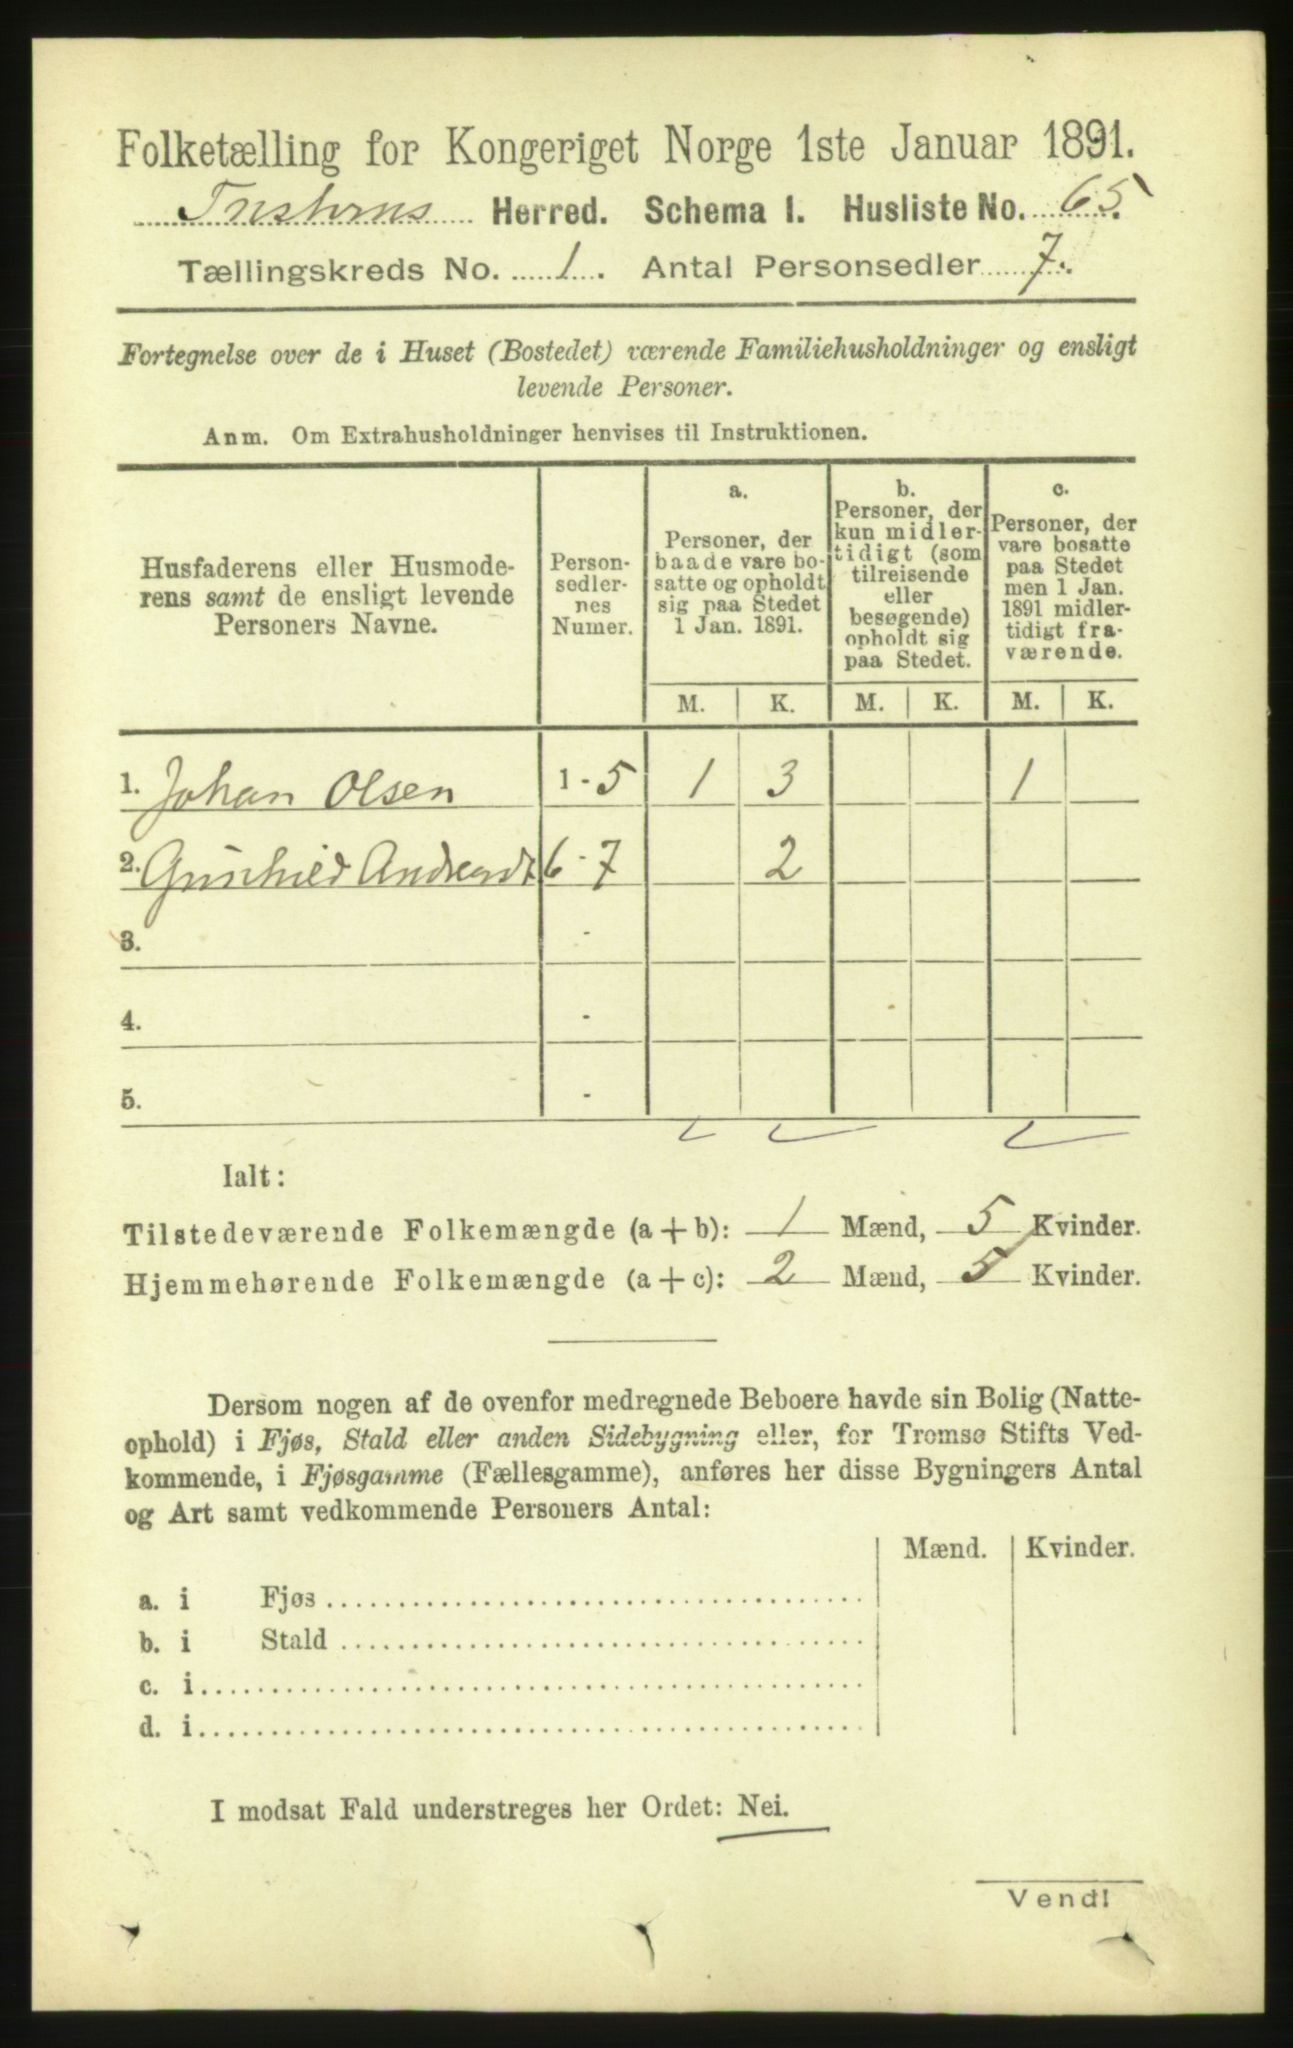 Folketælling for Kongeriget Norge 1ste Januar 1891.
Tustern Herred. Schema I. Husliste No. 65.
Tællingskreds No. 1. Antal Personsedler 7.
Fortegnelse over de i Huset (Bostedet) værende Familiehusholdninger og ensligt
levende Personer.
Anm. Om Extrahusholdninger henvises til Instruktionen.
Husfaderens eller Husmode-
rens samt de ensligt levende
Personers Navne.
Person-
sedler-
nes
Numer.
a.
Personer, der
baade vare bo-
satte og opholdt
sig paa Stedet
1 Jan. 1891.
b.
Personer, der
kun midler-
tidigt (som
tilreisende
eller
besøgende)
opholdt sig
paa Stedet.
c.
Personer, der
vare bosatte
paa Stedet
men 1 Jan.
1891 midler-
tidigt fra-
værende.
M. K. M. K. M. K.
1. Johan Olsen 1-5 1 3 1
2. Gunhild Andersdt 6-7 2
3. -
4. -
5. -
Ialt:
Tilstedeværende Folkemængde (a + b): 1 Mænd, 5 Kvinder.
Hjemmehørende Folkemængde (a + c): 2 Mænd, 5 Kvinder.
Dersom nogen af de ovenfor medregnede Beboere havde sin Bolig (Natte-
ophold) i Fjøs, Stald eller anden Sidebygning eller, for Tromsø Stifts Ved-
kommende, i Fjøsgamme (Fællesgamme), anføres her disse Bygningers Antal
og Art samt vedkommende Personers Antal:
Mænd. Kvinder.
a. i Fjøs
b. i Stald
c. i
d. i
I modsat Fald understreges her Ordet: Nei.
Vend!